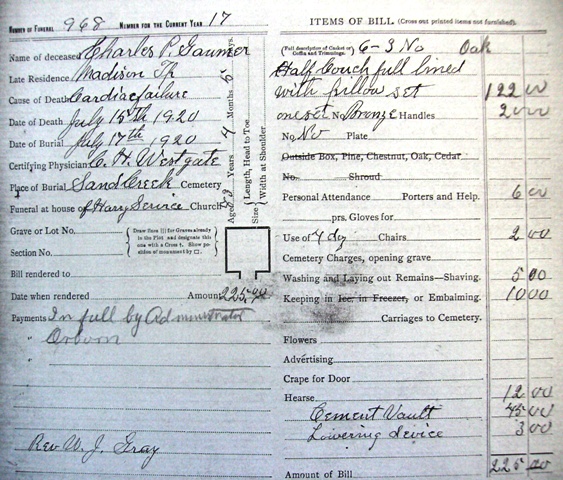 NUMBER OF FUNERAL 968 NUMBER FOR THE CURRENT YEAR 17
Name of deceased Charles P. Gaumer
Late Residence Madison Tp
Cause of Death Cardiac failure
Date of Death July 15th 1920
Date of Burial July 17th 1920
Certifying Physician C. H. Westgate
Place of Burial Sand Creek Cemetery
Funeral at house of Harry Service Church
Aged Years 4 Months Days
Size { Length, Head to Toe
Width at Shoulder
Grave or Lot No.
Section No.
{ Draw lines for Graves already in the Plot and designate this one with a Cross †. Show position of monument by □. }
Bill rendered to
Date when rendered Amount 225.00
Payments In full by Administrator
" Osborn
"
Rev W. J. Gray
ITEMS OF BILL (Cross out printed items not furnished).
(Full description of Casket or Coffin and Trimmings.) 6-3 No Oak
Half Couch full lined
with pillow set 122 00
one set No Bronze Handles 2 00
No. No Plate
Outside Box, Pine, Chestnut, Oak, Cedar
No. Shroud
Personal Attendance Porters and Help. 6 00
prs. Gloves for
Use of 4 dz Chairs 2 00
Cemetery Charges, opening grave
Washing and Laying out Remains—Shaving. 5 00
Keeping in Ice, in Freezer, or Embalming. 10 00
Carriages to Cemetery.
Flowers
Advertising
Crape for Door
Hearse 12 00
Cement Vault 00
Lowering device 3 00
Amount of Bill 225 00